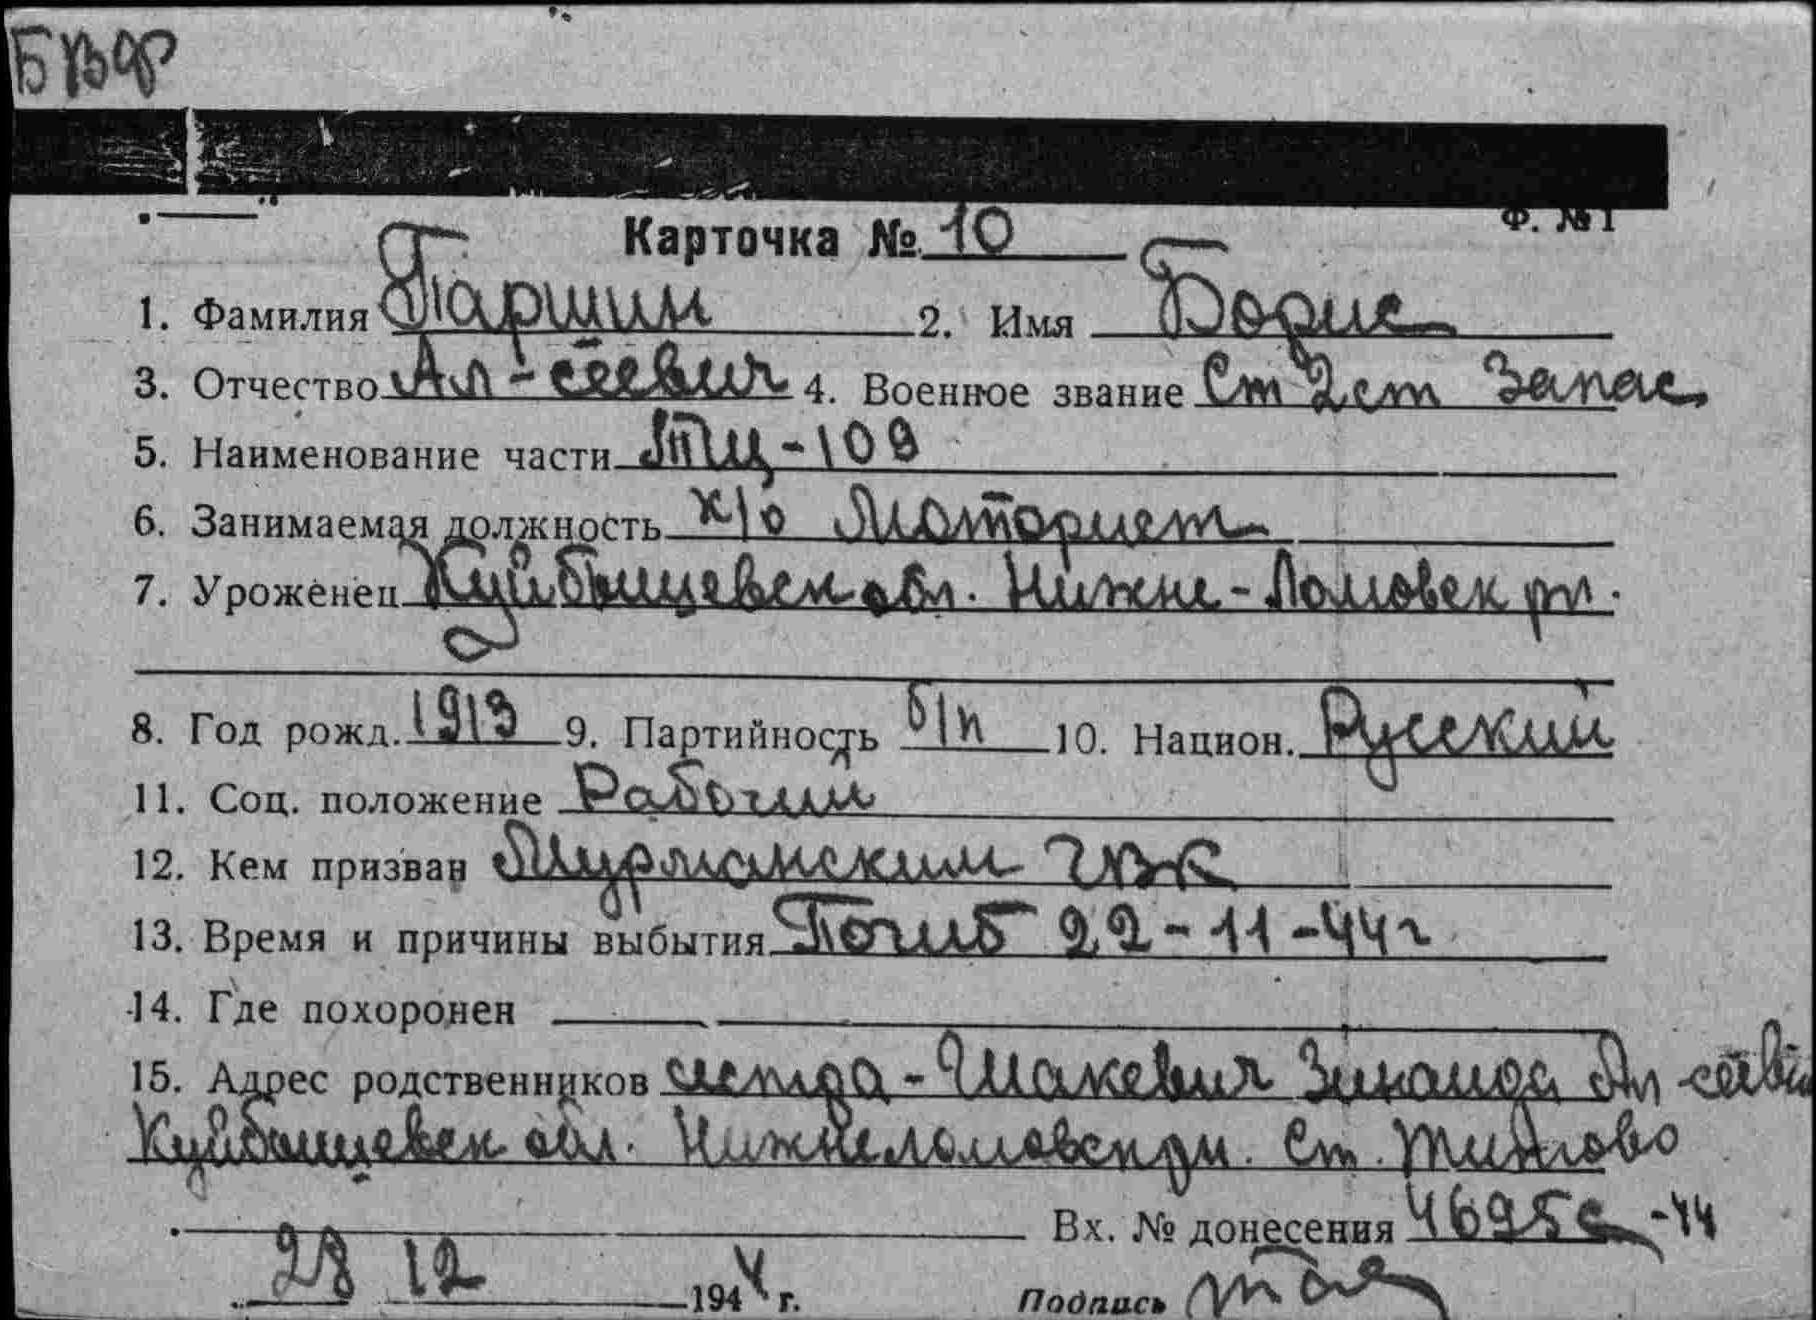 БВФ
Ф. № 1
Карточка № 10
1. Фамилия Паршин 2. Имя Борис
3. Отчество Ал-сеевич 4. Военное звание Ст 2 ст запас
5. Наименование части ТЩ-109
6. Занимаемая должность к/о Моторист
7. Уроженец Куйбышевск обл. Нижне-Ломовск рн.
8. Год рожд. 1913 9. Партийность б/п 10. Национ. Русский
11. Соц. положение Рабочий
12. Кем призван Мурманским ГВК
13. Время и причины выбытия Погиб 22-11-44 г
14. Где похоронен
15. Адрес родственников сестра - Шакевич Зинаида Ал-сеев
Куйбышевск обл. Нижнеломовск рн. Ст.
Вх. № донесения 4695с -44
28 12 1944 г. Подпись